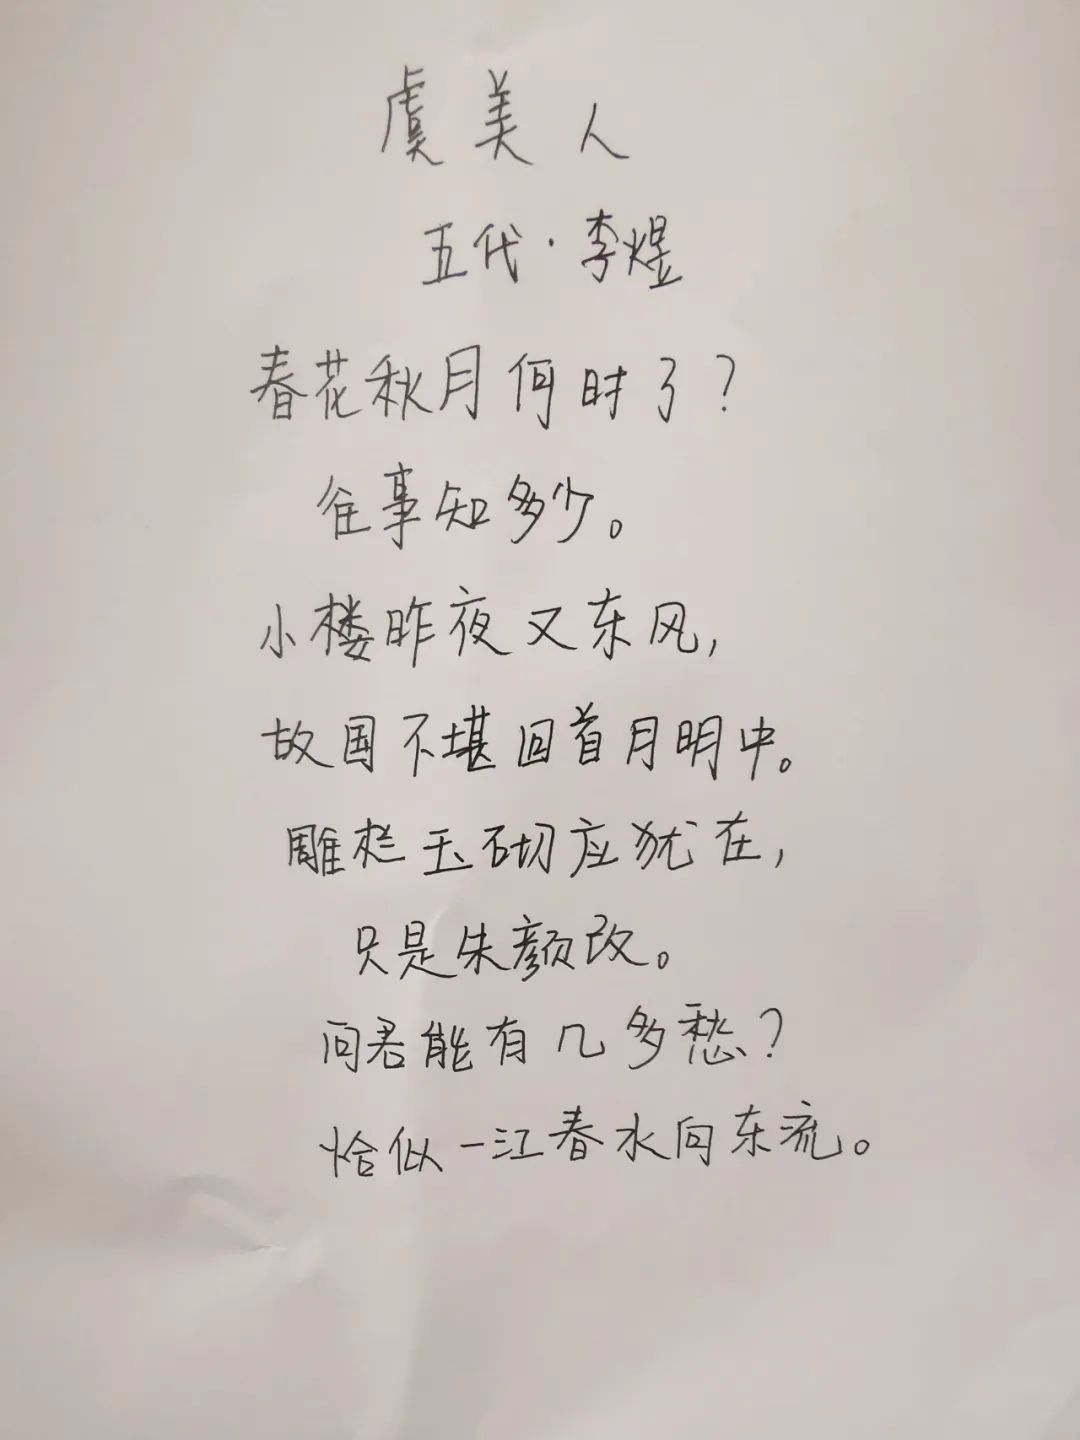 虞美人
五代·李煜
春花秋月何时了？
往事知多少。
小楼昨夜又东风，
故国不堪回首月明中。
雕栏玉砌应犹在，
只是朱颜改。
问君能有几多愁？
恰似一江春水向东流。